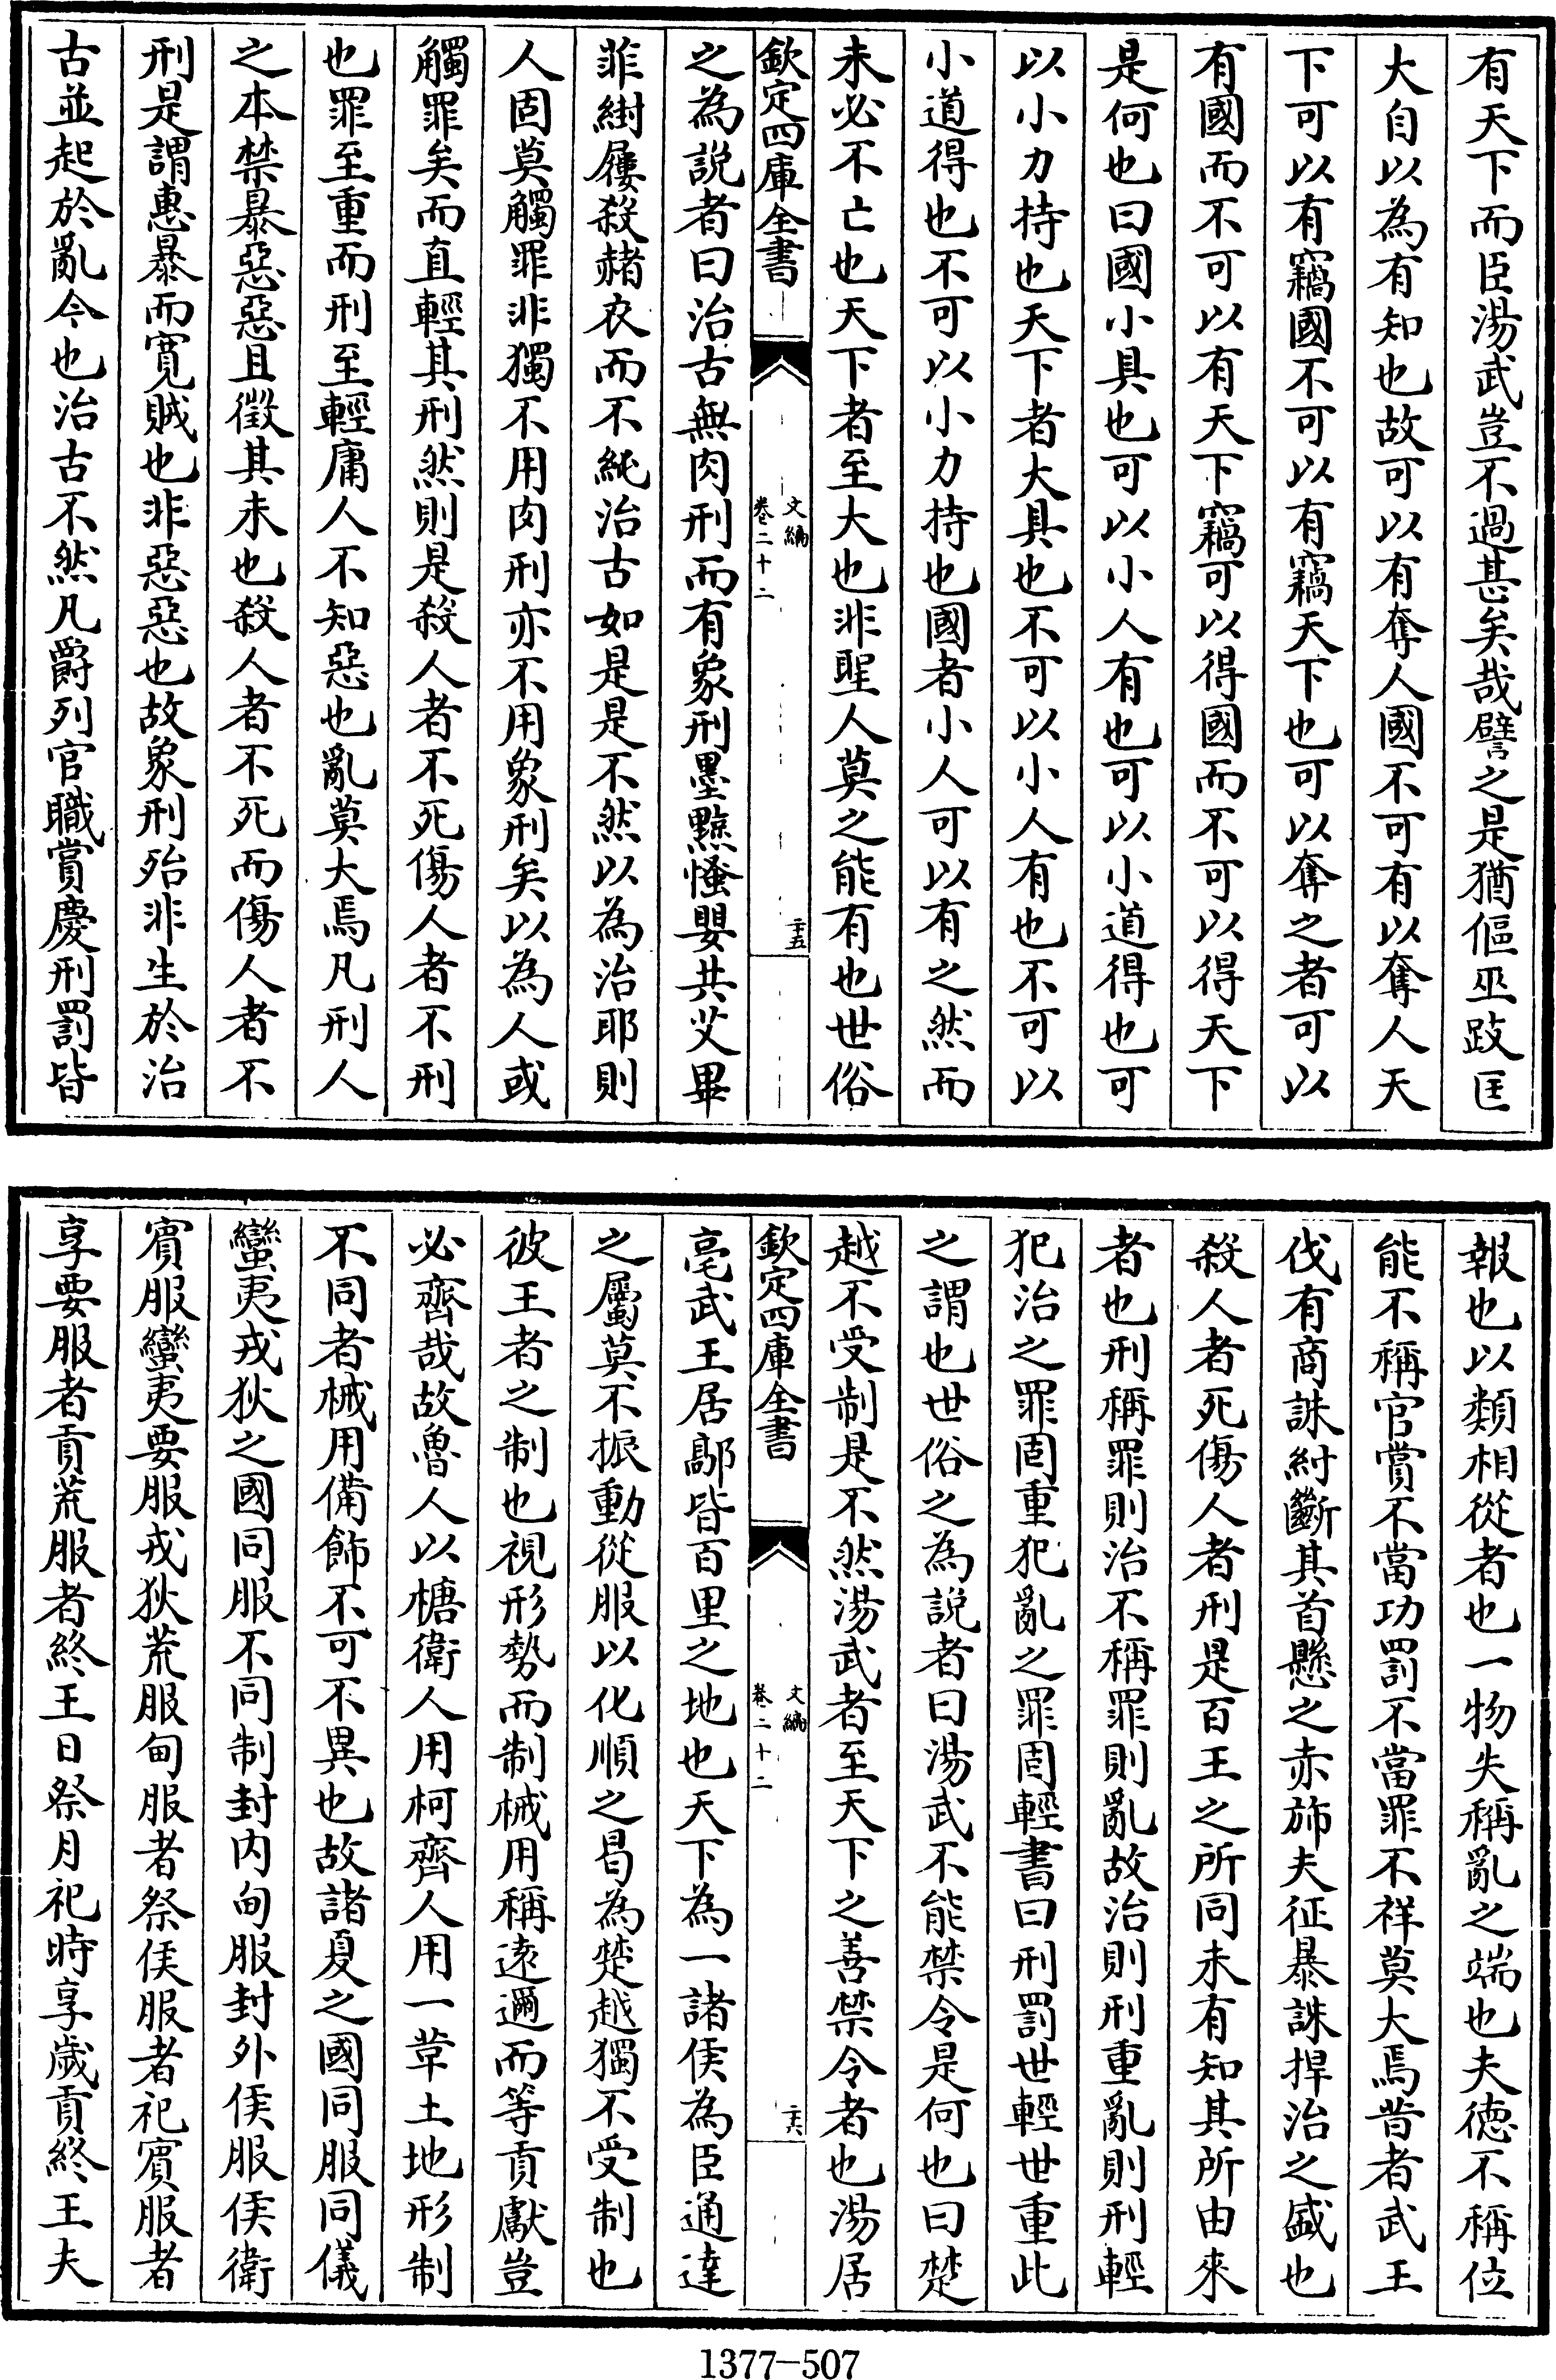 有天下而臣湯武豈不過甚矣哉譬之是猶傴巫跂匡
大自以為有知也故可以有奪人國不可有以奪人天
下可以有竊國不可以有竊天下也可以奪之者可以
有國而不可以有天下竊可以得國而不可以得天下
是何也曰國小具也可以小人有也可以小道得也可
以小力持也天下者大具也不可以小人有也不可以
小道得也不可以小力持也國者小人可以有之然而
未必不亡也天下者至大也非聖人莫之能有也世俗
欽定四庫全書
文編
卷二十二
二十五
之為說者曰治古無肉刑而有象刑墨黥慅嬰共艾畢
菲紨屨殺赭衣而不純治古如是是不然以為治耶則
人固莫觸罪非獨不用肉刑亦不用象刑矣以為人或
觸罪矣而直輕其刑然則是殺人者不死傷人者不刑
也罪至重而刑至輕庸人不知惡也亂莫大焉凡刑人
之本禁暴惡惡且徵其未也殺人者不死而傷人者不
刑是謂惠暴而寛賊也非惡惡也故象刑殆非生於治
古並起於亂今也治古不然凡爵列官職賞慶刑罰皆
報也以類相從者也一物失稱亂之端也夫德不稱位
能不稱官賞不當功罰不當罪不祥莫大焉昔者武王
伐有商誅紂斷其首懸之赤斾夫征暴誅捍治之盛也
殺人者死傷人者刑是百王之所同未有知其所由來
者也刑稱罪則治不稱罪則亂故治則刑重亂則刑輕
犯治之罪固重犯亂之罪固輕書曰刑罰世輕世重此
之謂也世俗之為說者曰湯武不能禁令是何也曰楚
越不受制是不然湯武者至天下之善禁令者也湯居
欽定四庫全書
文編
卷二十二
二十六
亳武王居鄗皆百里之地也天下為一諸侯為臣通達
之屬莫不振動從服以化順之曷為楚越獨不受制也
彼王者之制也視形勢而制械用稱逺邇而等貢獻豈
必齊哉故魯人以榶衛人用柯齊人用一革土地形制
不同者械用備飾不可不異也故諸夏之國同服同儀
蠻夷戎狄之國同服不同制封内甸服封外侯服侯衛
賓服蠻夷要服戎狄荒服甸服者祭侯服者祀賓服者
享要服者貢荒服者終王日祭月祀時享歲貢終王夫
1377—507